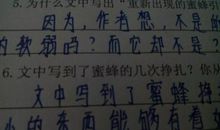 5. 为什么文中写出“重新出现的蜜蜂引
因为,作者想,不是
的软弱吗?而它却不是
6. 文中写到了蜜蜂的几次挣扎?你从
文中写到了蜜蜂挣
小的东西能够有着